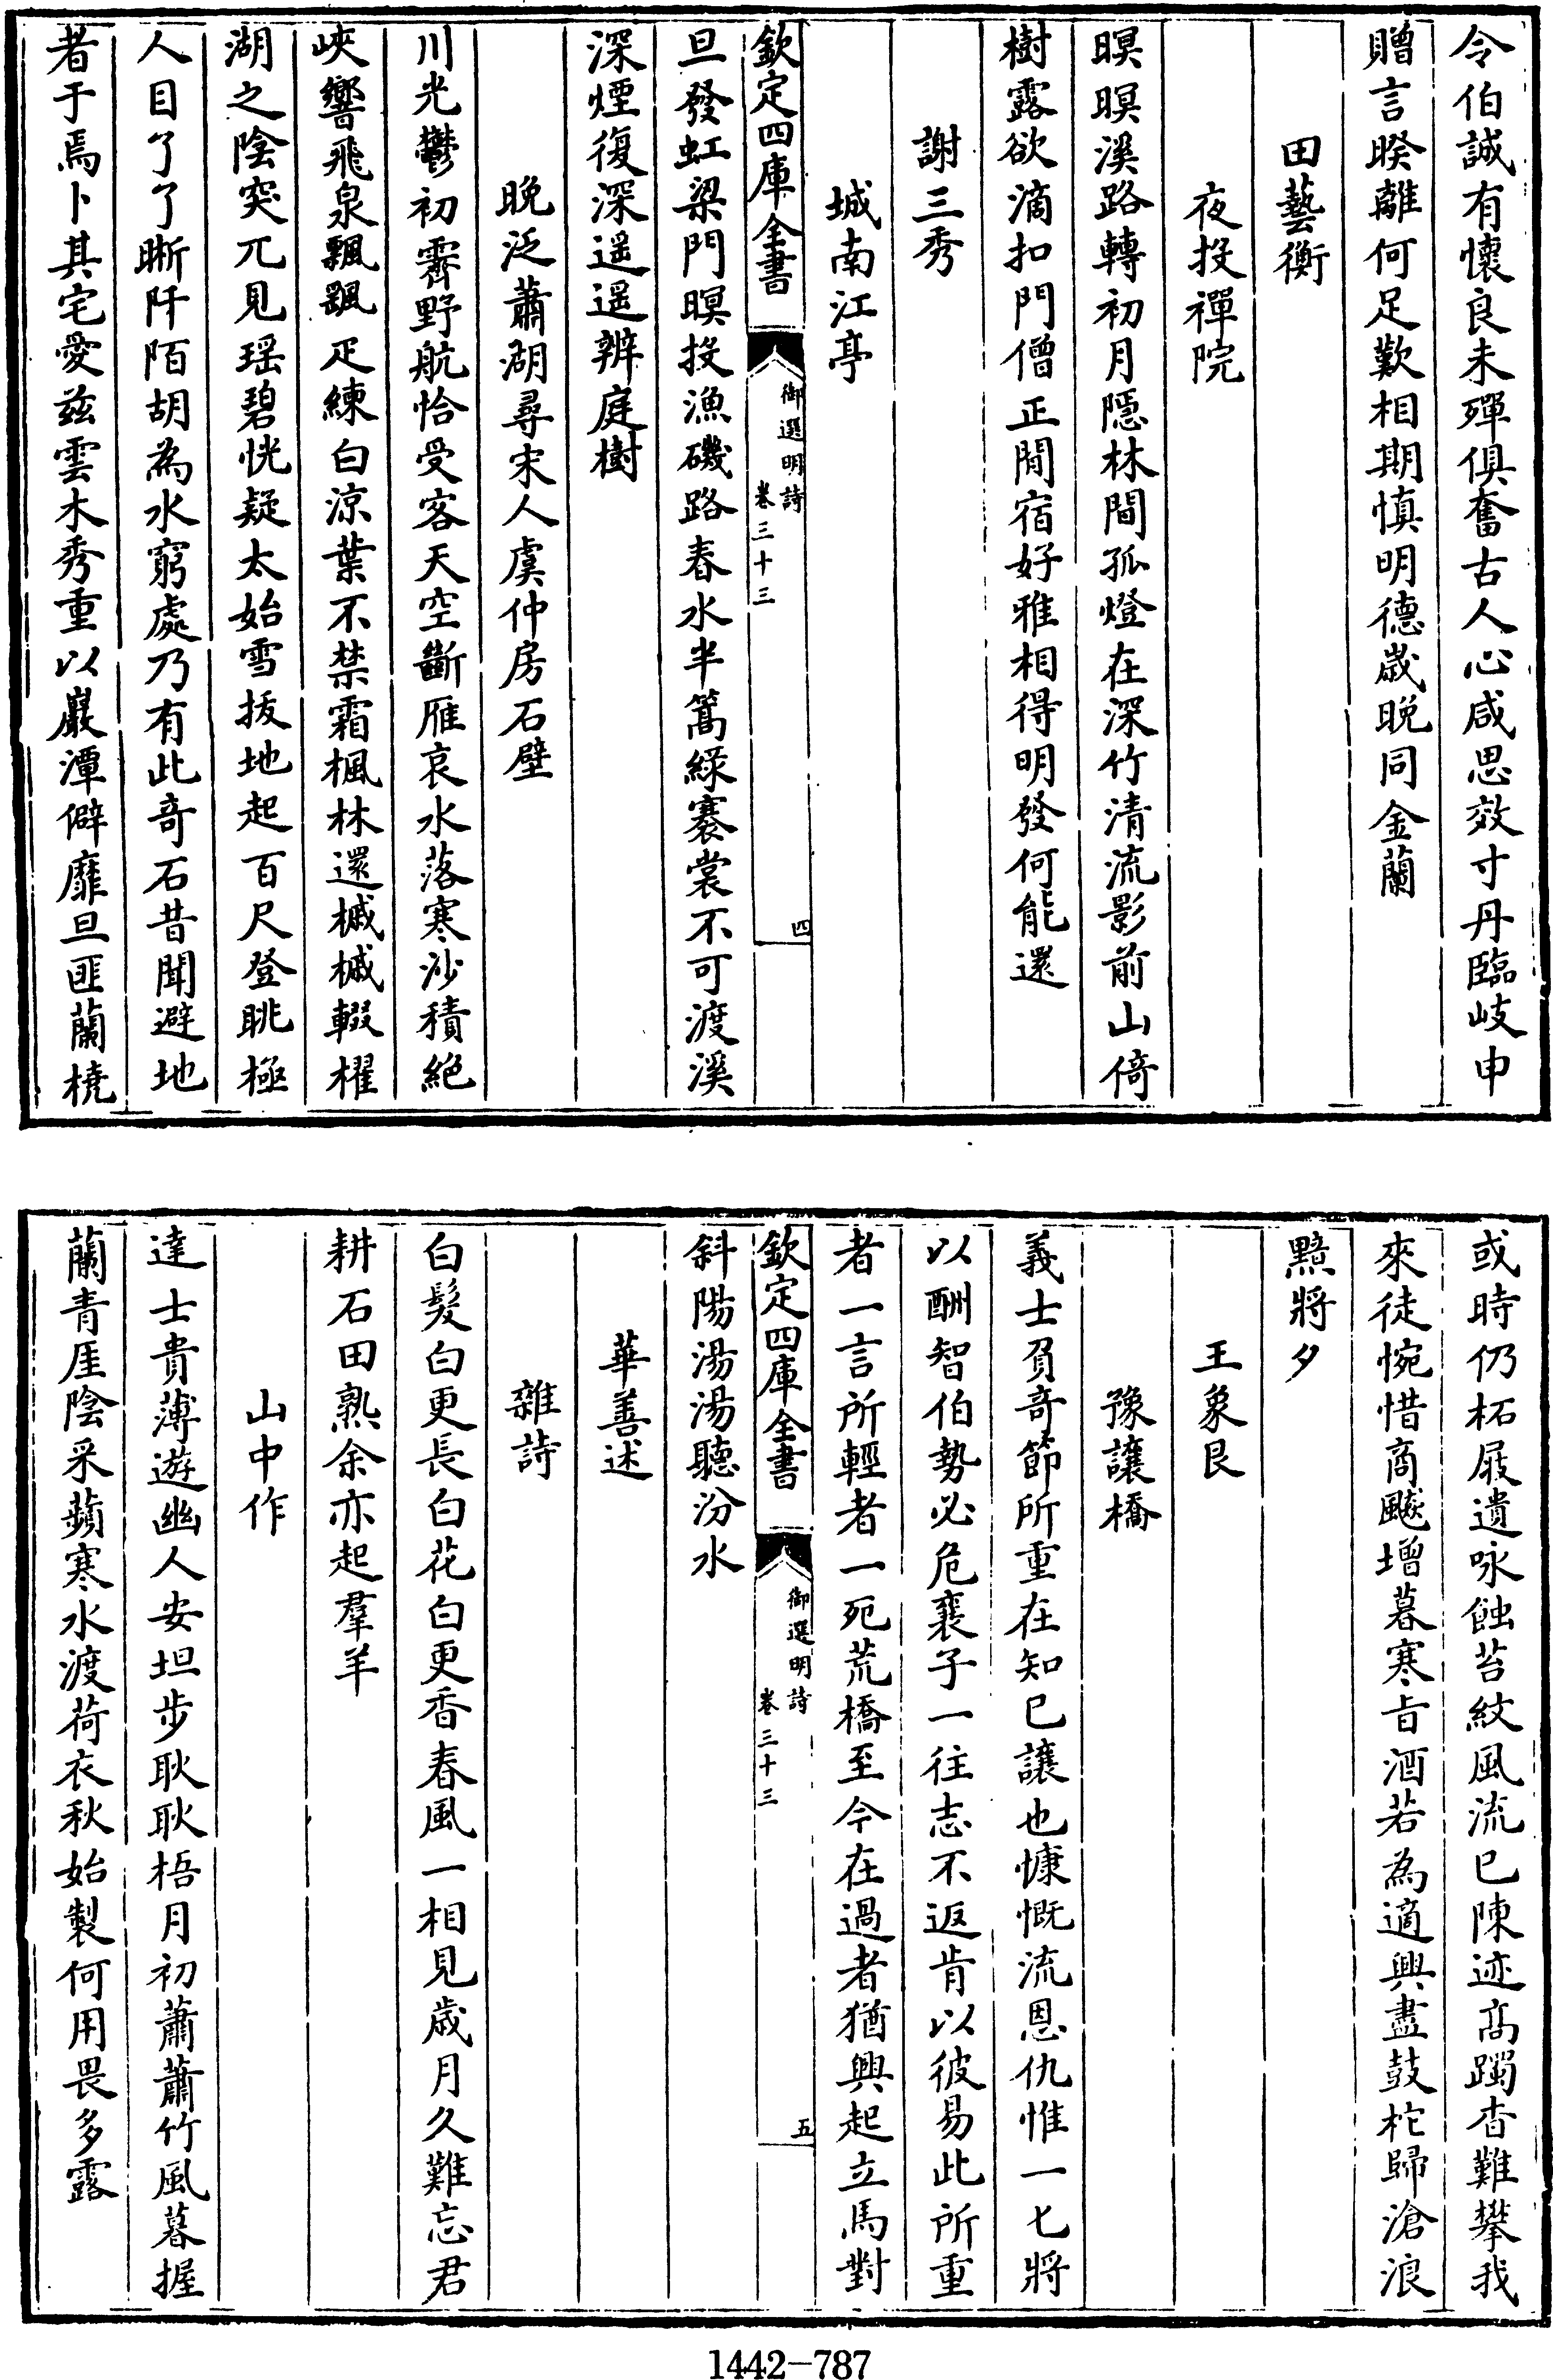 令伯誠有懷良未殫俱奮古人心咸思效寸丹臨岐申
贈言暌離何足歎相期慎明德歲晚同金蘭
田藝衡
夜投禪院
暝暝溪路轉初月隱林間孤燈在深竹清流影前山倚
樹露欲滴扣門僧正閒宿好雅相得明發何能還
謝三秀
城南江亭
欽定四庫全書
御選明詩
卷三十三
四
旦發虹梁門暝投漁磯路春水半篙綠褰裳不可渡溪
深煙復深遥遥辨庭樹
晚泛蕭湖尋宋人虞仲房石壁
川光鬱初霽野航恰受客天空斷雁哀水落寒沙積絶
峽響飛泉飄飄疋練白涼葉不禁霜楓林還槭槭輟櫂
湖之陰突兀見瑶碧恍疑太始雪拔地起百尺登眺極
人目了了晰阡陌胡為水窮處乃有此奇石昔聞避地
者于焉卜其宅愛兹雲木秀重以巖潭僻靡旦匪蘭橈
或時仍柘屐遺咏蝕苔紋風流已陳迹高躅杳難攀我
來徒惋惜商飈增暮寒旨酒若為適興盡鼓柁歸滄浪
黯將夕
王象艮
豫讓橋
義士負奇節所重在知已讓也慷慨流恩仇惟一七將
以酬智伯勢必危襄子一往志不返肯以彼易此所重
者一言所輕者一死荒橋至今在過者猶興起立馬對
欽定四庫全書
御選明詩
卷三十三
五
斜陽湯湯聽汾水
華善述
雜詩
白髮白更長白花白更香春風一相見歲月久難忘君
耕石田熟余亦起羣羊
山中作
達士貴薄遊幽人安坦步耿耿梧月初蕭蕭竹風暮握
蘭青厓陰采蘋寒水渡荷衣秋始製何用畏多露
1442-787